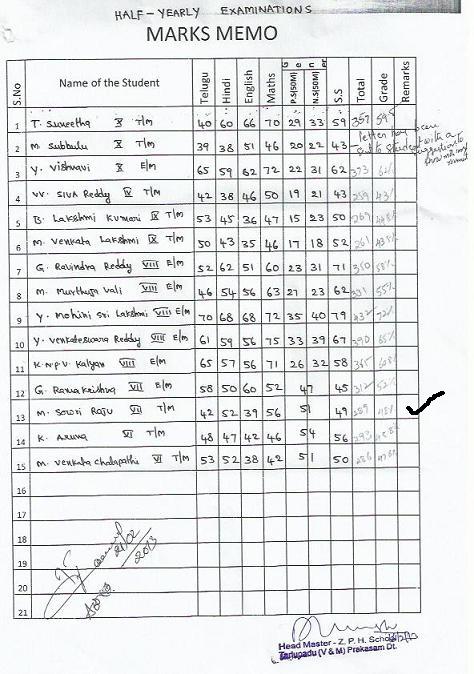 HALF-YEARLY EXAMINATIONS
MARKS MEMO
S.No Name of the Student Telugu Hindi English Maths Gener P.S(50M) N.S(50M) S.S Total Grade Remarks
1 T. Suneetha X T/M 40 60 66 70 29 33 59 357 59.5
2 M. Subbulu X T/M 39 38 51 46 20 22 43
letter has been
sent to student with a
suggestion to
3 Y. Vishnavi X E/M 65 59 62 72 22 31 62 373
4 VV. Siva Reddy IX T/M 42 38 46 50 19 21 43 259 43%
5 B. Lakshmi Kumari IX T/M 53 45 36 47 15 23 50 269
6 M. Venkata Lakshmi IX T/M 50 43 35 46 17 18 52 261
7 G. Ravindra Reddy VIII E/M 52 62 51 60 23 31 71 350 58%
8 M. Murthuja Vali VIII E/M 46 54 56 63 27 23 62 331 55%
9 Y. Mohini Sri Lakshmi VIII E/M 70 68 68 72 35 40 79 432 72%
10 Y. Venkateswara Reddy VIII E/M 61 59 56 75 33 39 67 390 65%
11 K.N.P.V. Kalyan VIII E/M 65 57 56 71 26 32 58 365
12 G. Ramakrishna VII E/M 58 50 60 52 47 45 312 52%
13 M. Sowri Raju VII T/M 42 52 39 56 51 49 289 48%
14 K. Aruna VI T/M 48 47 42 46 54 56 293
15 M. Venkata Chalapathi VI T/M 53 52 38 42 51 50 286
16
17
18
19
20
21
21/02
2013
Head Master - Z. P. H. School
Tarlupadu (V & M) Prakasam Dt.